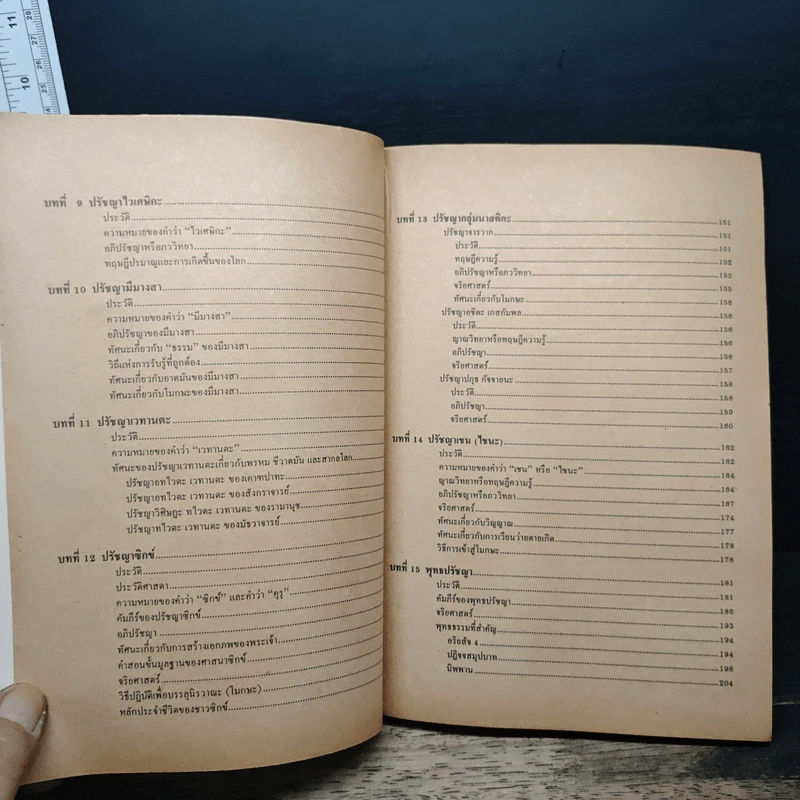 บทที่ 9 ปรัชญาไวเศษิกะ
ประวัติ
ความหมายของคำว่า "ไวเศษิกะ"
อภิปรัชญาหรือภววิทยา
ทฤษฎีปรมาณูและการเกิดขึ้นของโลก
บทที่ 10 ปรัชญามีมางสา
ประวัติ
ความหมายของคำว่า "มีมางสา"
อภิปรัชญาของมีมางสา
ทัศนะเกี่ยวกับ "ธรรม" ของมีมางสา
วิถีแห่งการรับรู้ที่ถูกต้อง
ทัศนะเกี่ยวกับอาตมันของมีมางสา
ทัศนะเกี่ยวกับโมกษะของมีมางสา
บทที่ 11 ปรัชญาเวทานตะ
ประวัติ
ความหมายของคำว่า "เวทานตะ"
ทัศนะของปรัชญาเวทานตะเกี่ยวกับพรหม ชีวาตมัน และสากลโลก
ปรัชญาอทไวตะ เวทานตะ ของเคาฑปาทะ
ปรัชญาอทไวตะ เวทานตะ ของสังกราจารย์
ปรัชญาวิศิษฏะ ทไวตะ เวทานตะ ของรามานุช
ปรัชญาทไวตะ เวทานตะ ของมัธวาจารย์
บทที่ 12 ปรัชญาซิกข์
ประวัติ
ประวัติศาสดา
ความหมายของคำว่า "ซิกข์" และคำว่า "คุรุ"
คัมภีร์ของปรัชญาซิกข์
อภิปรัชญา
ทัศนะเกี่ยวกับการสร้างเอกภพของพระเจ้า
คำสอนขั้นมูลฐานของศาสนาซิกข์
จริยศาสตร์
วิธีปฏิบัติเพื่อบรรลุนิรวาณะ (โมกษะ)
หลักประจำชีวิตของชาวซิกข์
บทที่ 13 ปรัชญากลุ่มนาสติกะ 151
ปรัชญาจารวาก 151
ประวัติ 151
ทฤษฎีความรู้ 152
อภิปรัชญาหรือภววิทยา 153
จริยศาสตร์ 155
ทัศนะเกี่ยวกับโมกษะ 156
ปรัชญาอชิตะ เกสกัมพล 156
ประวัติ 156
ญาณวิทยาหรือทฤษฎีความรู้ 156
อภิปรัชญา 156
จริยศาสตร์ 157
ปรัชญาปกุธ กัจจายนะ 158
ประวัติ 158
อภิปรัชญา 159
จริยศาสตร์ 160
บทที่ 14 ปรัชญาเชน (ไชนะ) 162
ประวัติ 162
ความหมายของคำว่า "เชน" หรือ "ไชนะ" 164
ญาณวิทยาหรือทฤษฎีความรู้ 164
อภิปรัชญาหรือภววิทยา 167
จริยศาสตร์ 174
ทัศนะเกี่ยวกับวิญญาณ 177
ทัศนะเกี่ยวกับการเวียนว่ายตายเกิด 178
วิธีการเข้าสู่โมกษะ 178
บทที่ 15 พุทธปรัชญา 181
ประวัติ 181
คัมภีร์ของพุทธปรัชญา 186
จริยศาสตร์ 193
พุทธธรรมที่สำคัญ 194
อริยสัจ 4 194
ปฏิจจสมุปบาท 198
นิพพาน 204
11
28
27
10
25
24